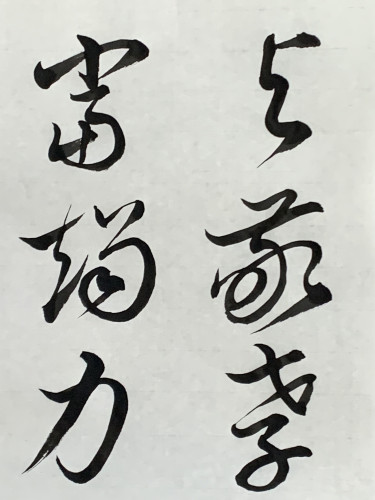 与敬孝
當竭力